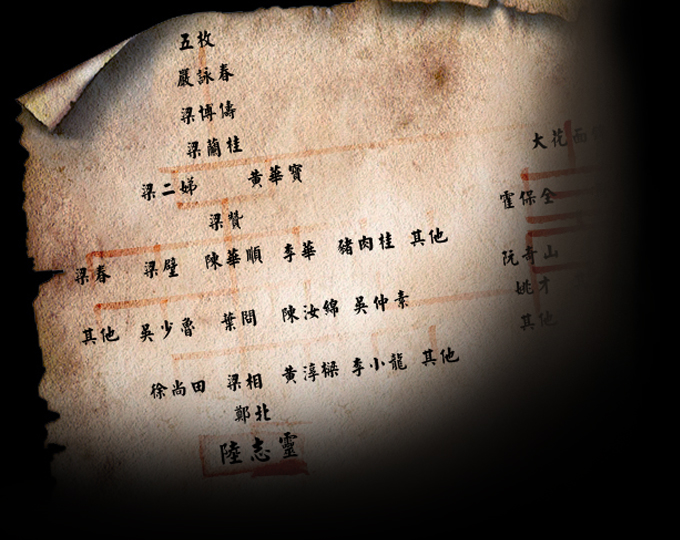 五枚
嚴詠春
梁博儔
梁蘭桂
大花面
梁二娣 黃華寶
霍保全
梁贊
梁春 梁璧 陳華順 李華 豬肉桂 其他
阮奇山
姚才
其他 吳少魯 葉問 陳汝綿 吳仲素
其他
徐尚田 梁相 黃淳樑 李小龍 其他
鄭北
陸志靈